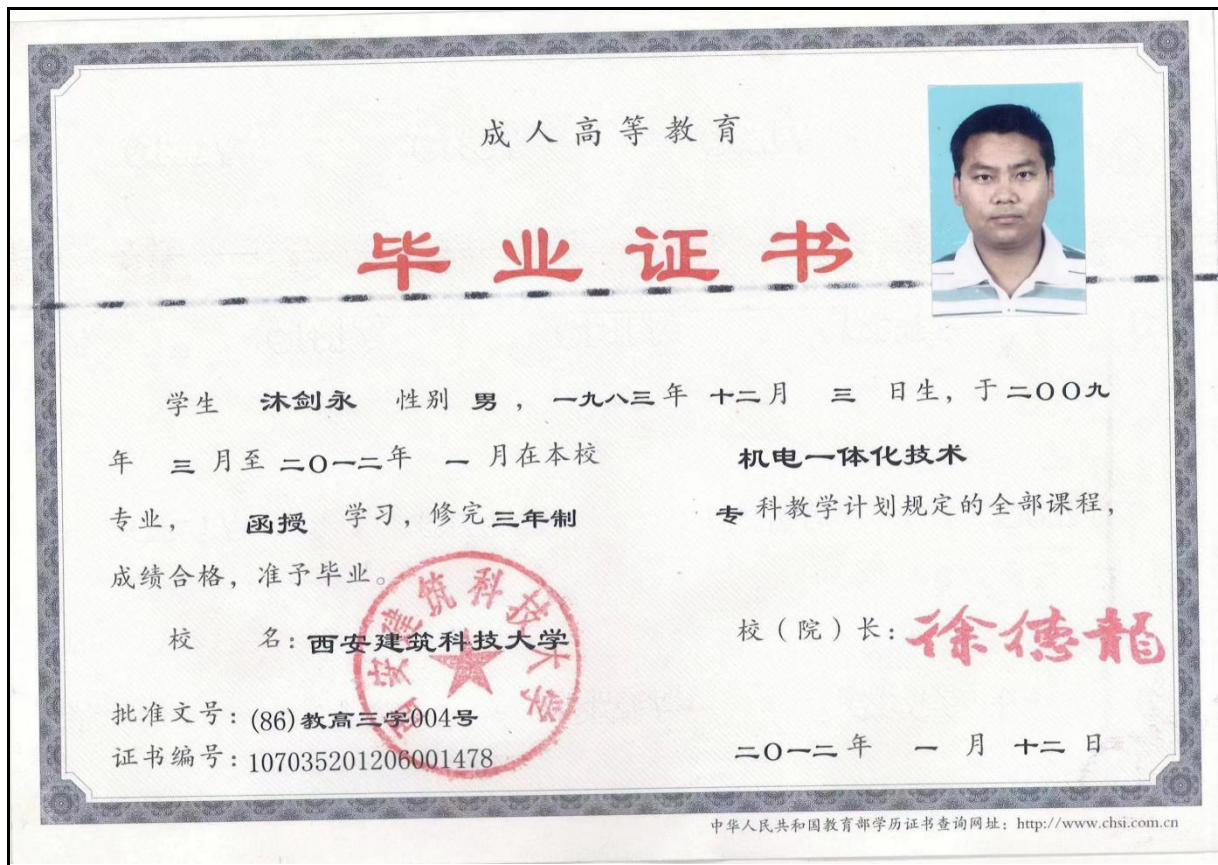 成人高等教育
毕业证书
学生 沐剑永 性别 男 ， 一九八三年 十二月 三 日生，于二〇〇九
年 三 月至 二〇一二年 一 月在本校 机电一体化技术
专业， 函授 学习，修完三年制 专 科教学计划规定的全部课程，
成绩合格，准予毕业。
校 名：西安建筑科技大学
校（院）长：徐德龍
西安建筑科技大学
批准文号：(86)教高三字004号
证书编号：107035201206001478
二〇一二年 一 月 十二 日
中华人民共和国教育部学历证书查询网址：http://www.chsi.com.cn